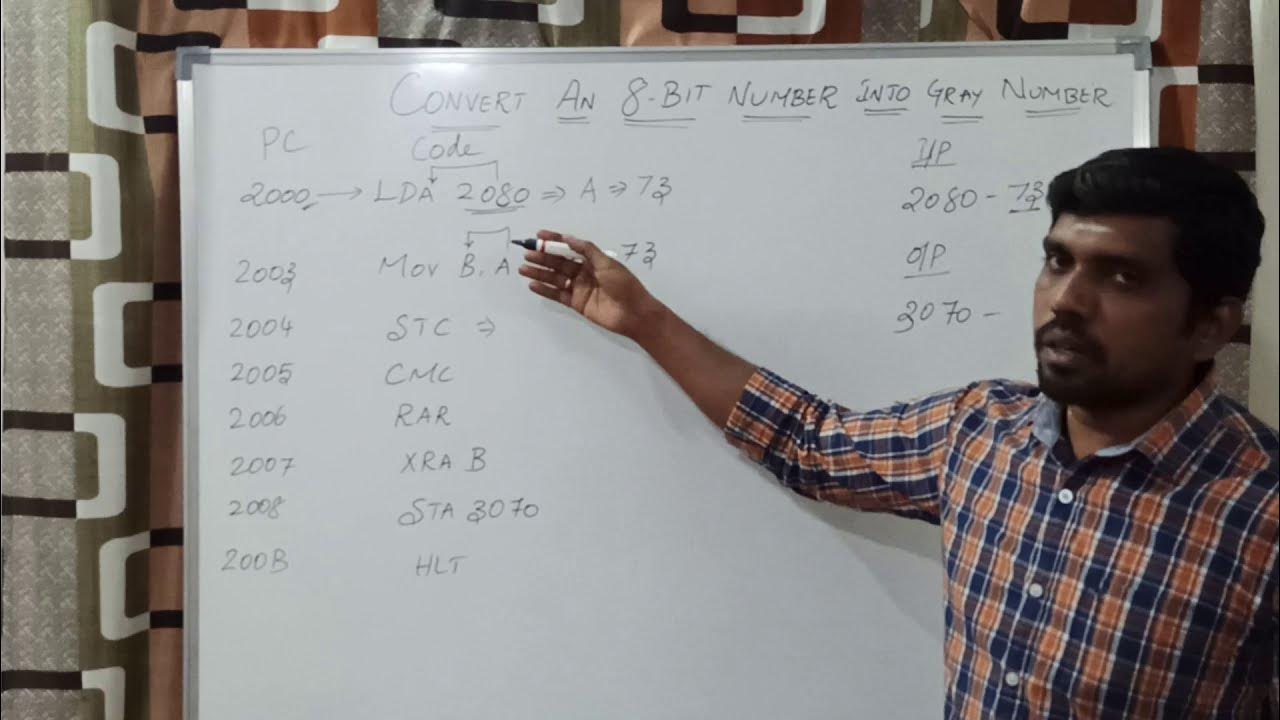 CONVERT AN 8-BIT NUMBER INTO GRAY NUMBER
PC Code I/P
2000 → LDA 2080 ⇒ A ⇒ 73 2080 - 73
O/P
2003 MOV B, A 73
3070 -
2004 STC ⇒
2005 CMC
2006 RAR
2007 XRA B
2008 STA 3070
200B HLT